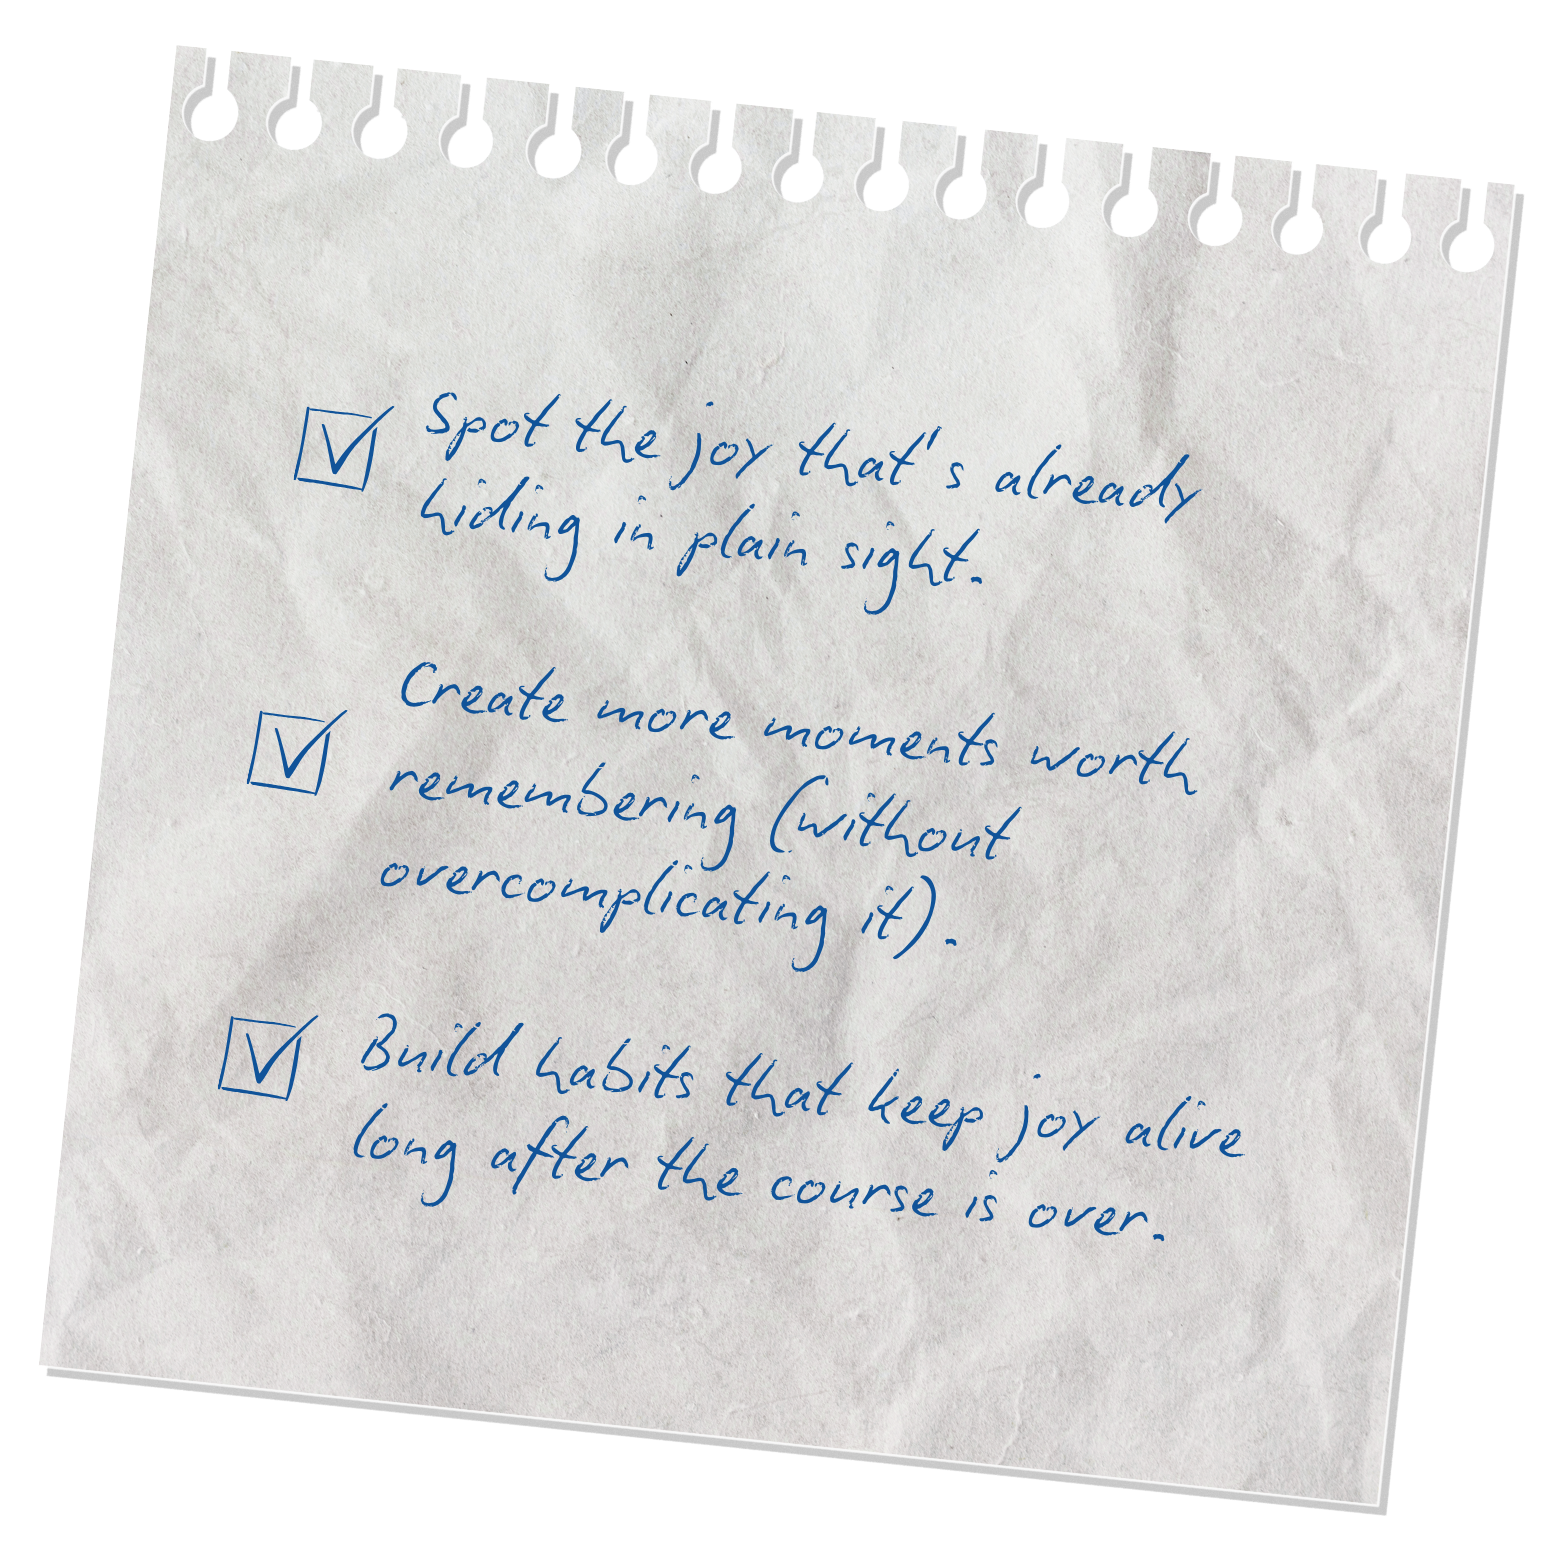 Spot the joy that's already
hiding in plain sight.
Create more moments worth
remembering (without
overcomplicating it).
Build habits that keep joy alive
long after the course is over.